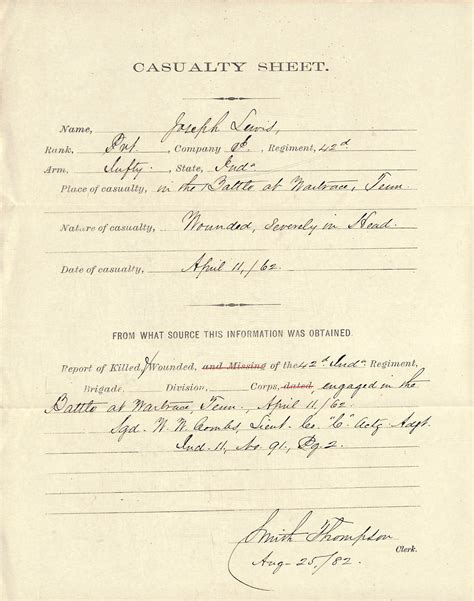 CASUALTY SHEET.
Name, Joseph Lewis,
Rank, Pvt, Company , Regiment, 42d
Arm, Infty, State, Inda
Place of casualty, in the Battle at Wartrace, Tenn.
Nature of casualty, Wounded, Severely in Head.
Date of casualty, April 11,/62.
FROM WHAT SOURCE THIS INFORMATION WAS OBTAINED.
Report of Killed, & Wounded, and Missing of the 42d Inda Regiment,
Brigade, Division, Corps, dated, engaged in the
Battle at Wartrace, Tenn., April 11/62.
Sgd. W. W. Combs, Lieut. Co. "C" Actg. Adgt.
Ind. 11, No. 91, Pg. 2.
Smith Thompson
Clerk.
Aug-25/82.